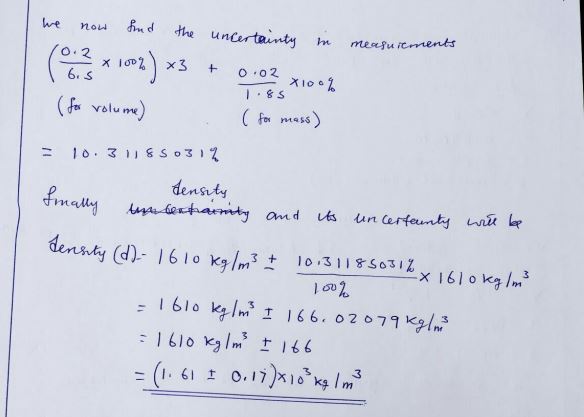 We now find the uncertainty in measurements
(0.2/6.5 × 100%) ×3 + 0.02/1.85 ×100%
(for volume) (for mass)
= 10.31185031%
finally density and its uncertainty will be
density (d) - 1610 kg/m³ ± 10.31185031%/100% × 1610 kg/m³
= 1610 kg/m³ ± 166.02079 kg/m³
= 1610 kg/m³ ± 166
= (1.61 ± 0.17)×10³ kg/m³